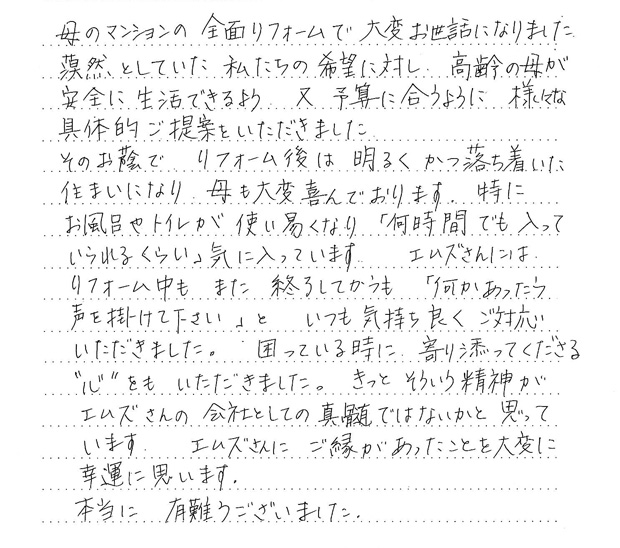 母のマンションの 全面リフォームで 大変お世話になりました
漠然としていた 私たちの希望に対し 高齢の母が
安全に 生活できるよう 又 予算に合うように 様々な
具体的ご提案をいただきました
そのお蔭で リフォーム後は 明るく かつ落ち着いた
住まいになり 母も大変喜んでおります. 特に
お風呂やトイレが 使い易くなり 「何時間でも入って
いられるくらい」気に入っています エムズさんには
リフォーム中も また 終了してからも 「何かあったら
声を掛けて下さい」と いつも気持ち良く ご対応
いただきました。 困っている時に 寄り添ってくださる
"心"をも いただきました。 きっと そういう精神が
エムズさんの 会社としての真髄ではないかと 思って
います エムズさんに ご縁があったことを大変に
幸運に思います.
本当に 有難うございました.